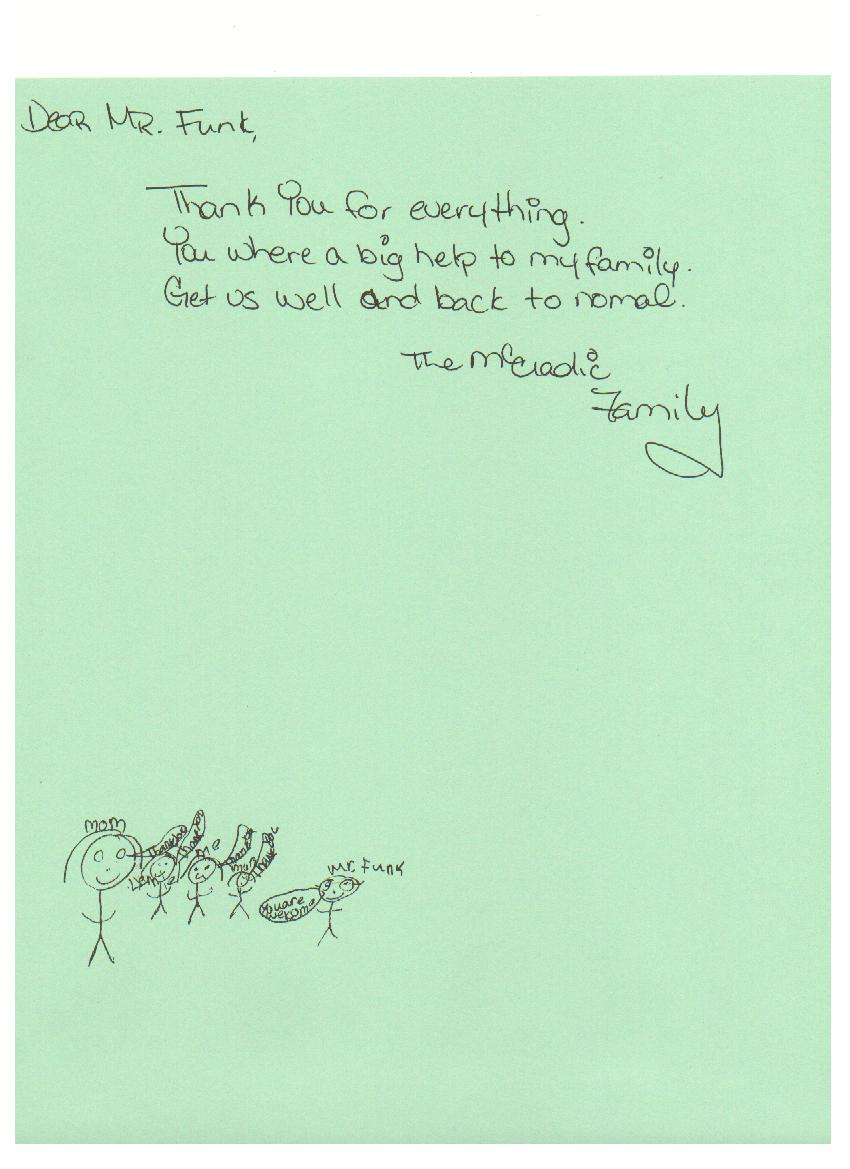 Dear Mr. Funk,
Thank You for everything.
You where a big help to my family.
Get us well and back to nomal.
The McCradic
Family
mom
Thank you
Thank you
me
Thank you
Thank you
Mr. Funk
You are
welcome